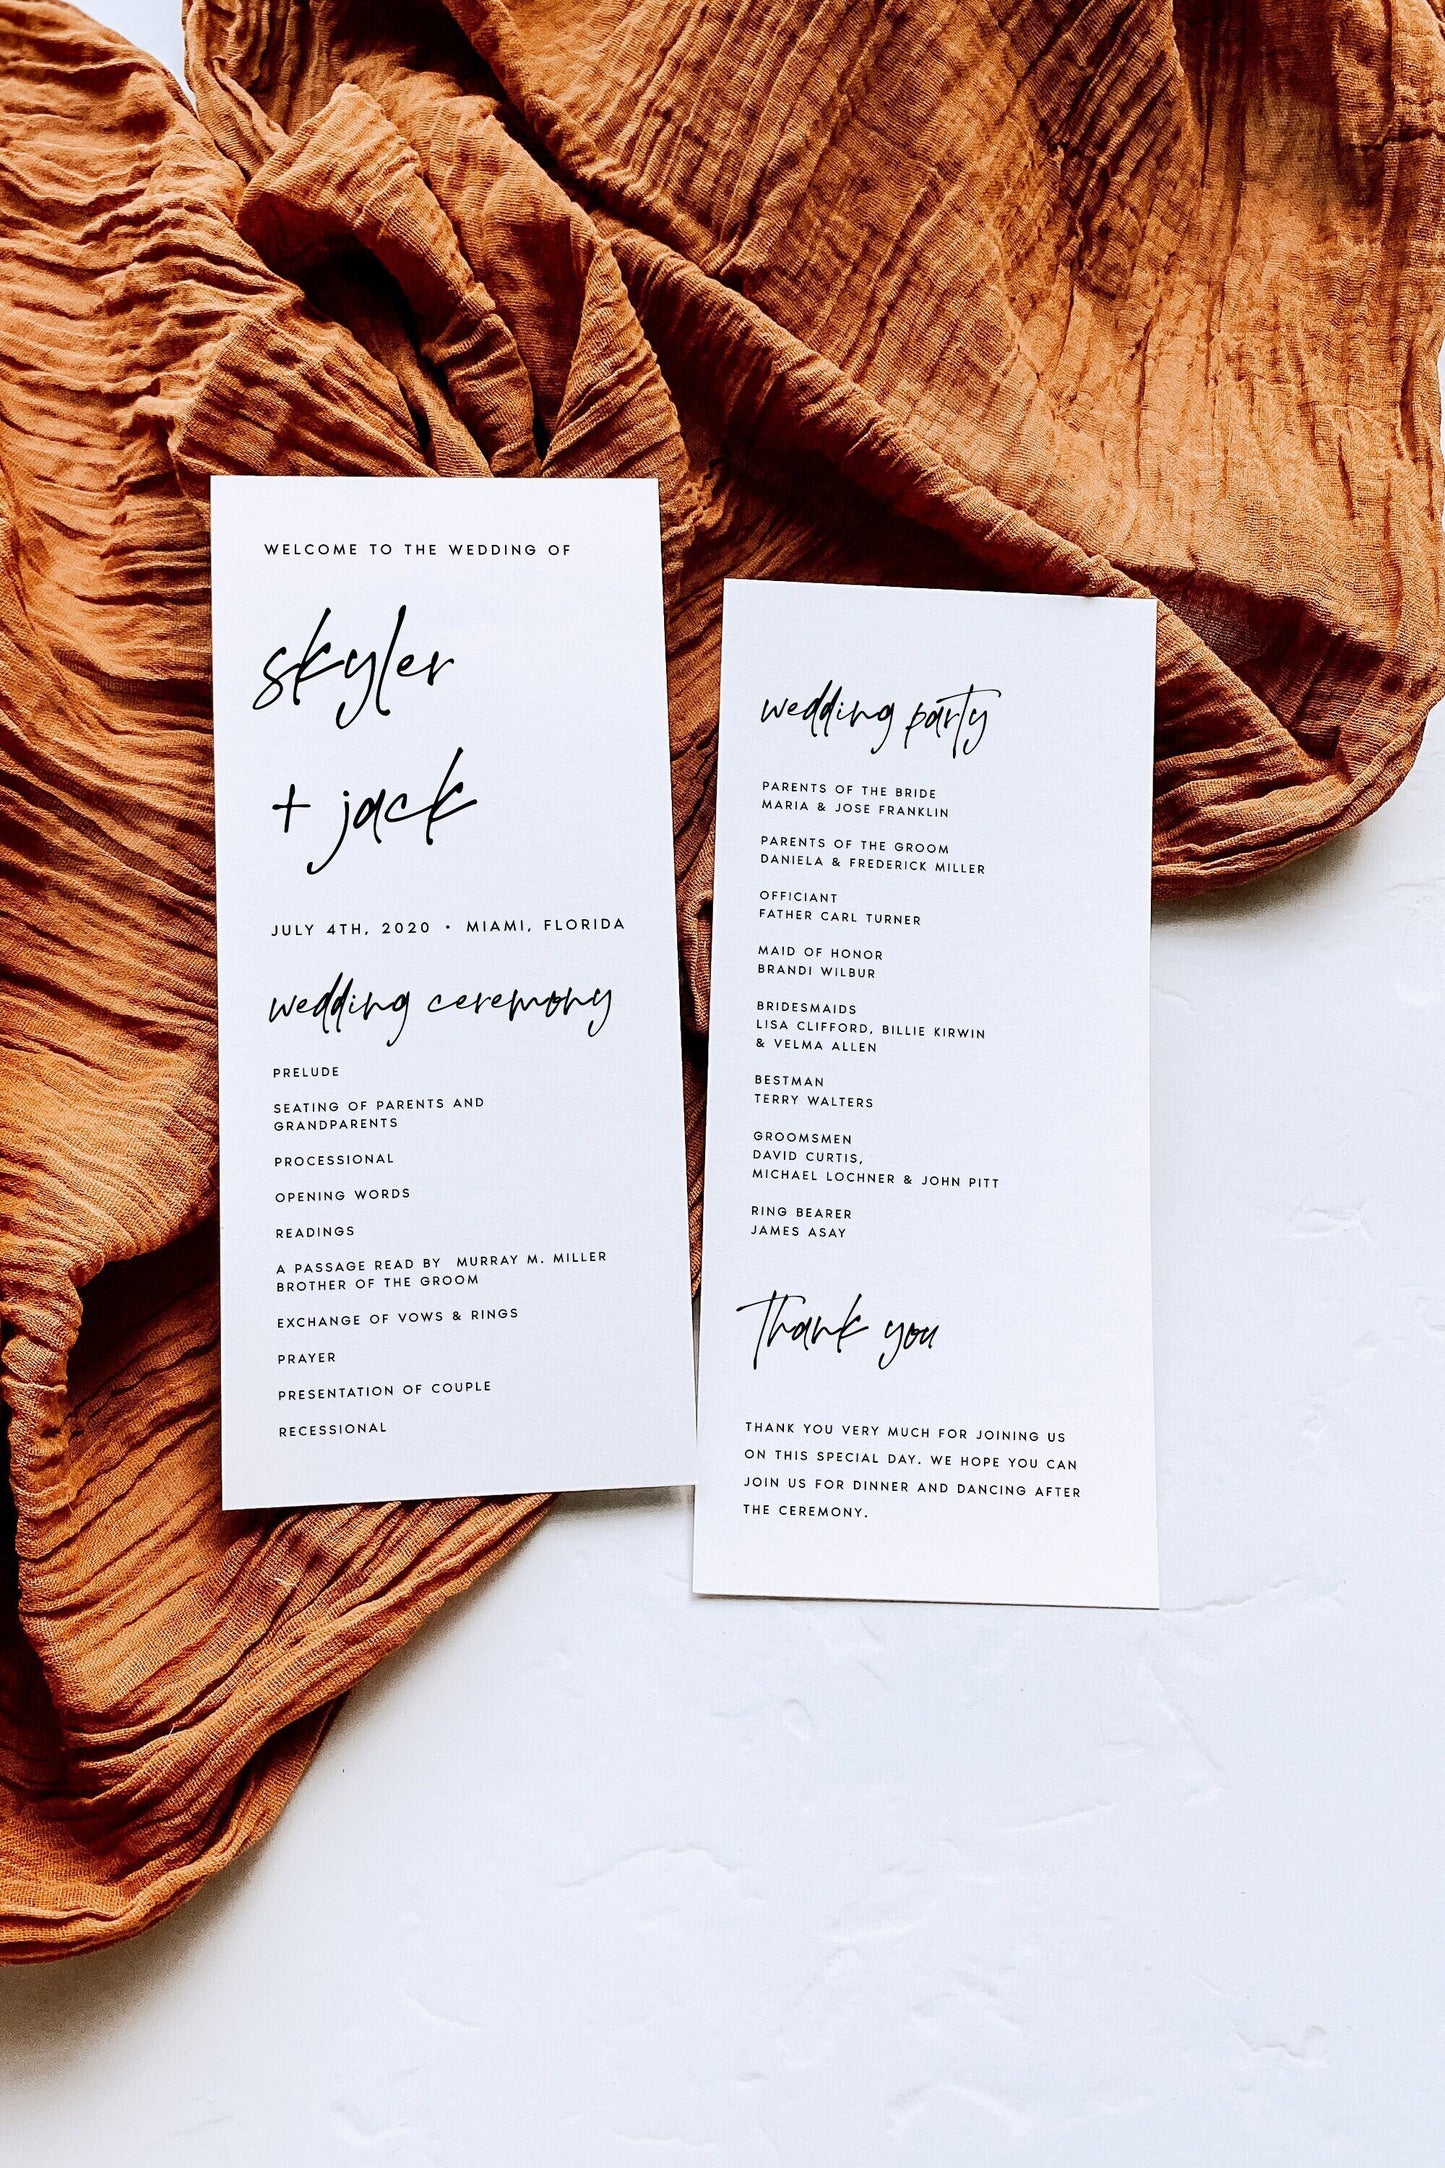 WELCOME TO THE WEDDING OF
skyler
+ jack
JULY 4TH, 2020 • MIAMI, FLORIDA
wedding ceremony
PRELUDE
SEATING OF PARENTS AND
GRANDPARENTS
PROCESSIONAL
OPENING WORDS
READINGS
A PASSAGE READ BY MURRAY M. MILLER
BROTHER OF THE GROOM
EXCHANGE OF VOWS & RINGS
PRAYER
PRESENTATION OF COUPLE
RECESSIONAL
wedding party
PARENTS OF THE BRIDE
MARIA & JOSE FRANKLIN
PARENTS OF THE GROOM
DANIELA & FREDERICK MILLER
OFFICIANT
FATHER CARL TURNER
MAID OF HONOR
BRANDI WILBUR
BRIDESMAIDS
LISA CLIFFORD, BILLIE KIRWIN
& VELMA ALLEN
BESTMAN
TERRY WALTERS
GROOMSMEN
DAVID CURTIS,
MICHAEL LOCHNER & JOHN PITT
RING BEARER
JAMES ASAY
Thank you
THANK YOU VERY MUCH FOR JOINING US
ON THIS SPECIAL DAY. WE HOPE YOU CAN
JOIN US FOR DINNER AND DANCING AFTER
THE CEREMONY.